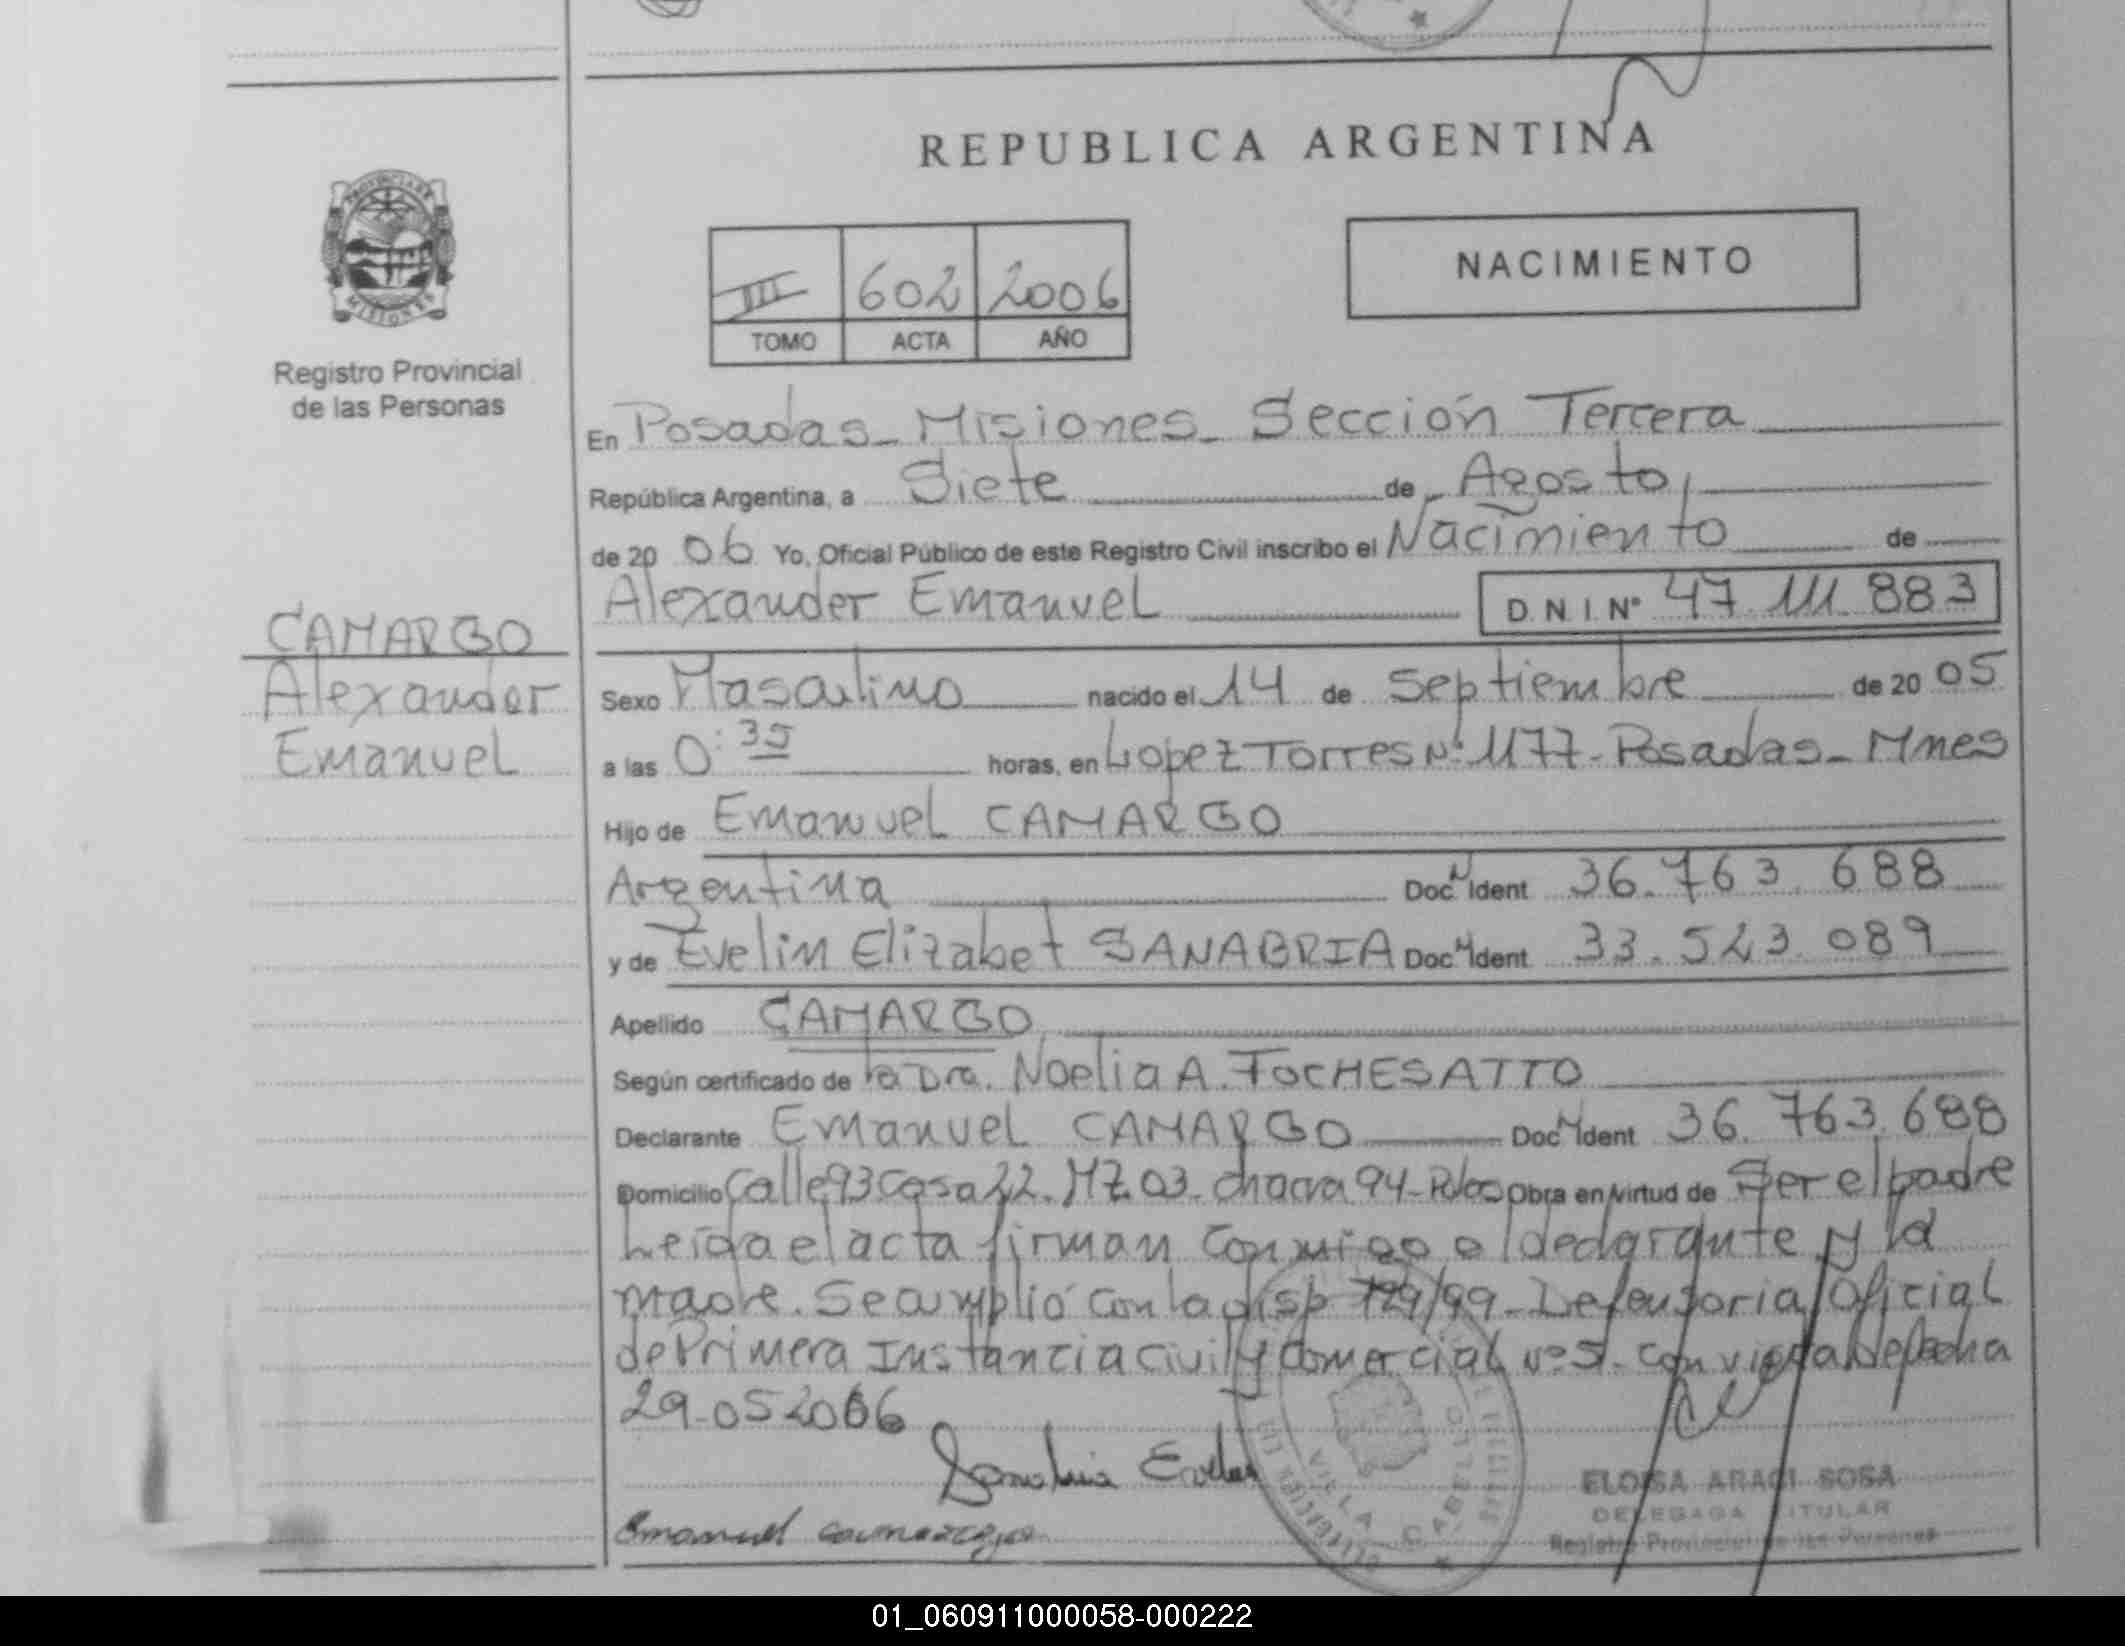 REPUBLICA ARGENTINA
PROVINCIA DE
MISIONES
Registro Provincial
de las Personas
NACIMIENTO
III 602 2006
TOMO ACTA AÑO
En Posadas - Misiones - Sección Tercera
República Argentina, a Siete de Agosto
de 20 06 Yo, Oficial Público de este Registro Civil inscribo el Nacimiento de
Alexander Emanuel D.N.I. Nº 47 111 883
CAMARGO
Alexander
Emanuel
Sexo Masculino nacido el 14 de Septiembre de 20 05
a las 0:35 horas, en Lopez Torres Nº 1177 - Posadas - Mnes
Hijo de Emanuel CAMARGO
Argentina Doc N Ident 36.763.688
y de Evelin Elizabet SANABRIA Doc N Ident 33.523.089
Apellido CAMARGO
Según certificado de la Dra. Noelia A. TOCHESATTO
Declarante Emanuel CAMARGO Doc N Ident 36.763.688
Domicilio Calle 93 Casa 22. MZ 03. chacra 94 - Pdas Obra en virtud de Ser el padre
Leída el acta firman conmigo el declarante y la
madre. Se cumplió con la disp 129/99 - Defensoria Oficial
de Primera Instancia Civil y Comercial nº 5. con vista de fecha
29-05 2006
Sanabria Evelin
Emanuel camargo
VILLA CABELLO
ELOISA ARACI SOSA
DELEGADA TITULAR
Registro Provincial de las Personas
01_060911000058-000222